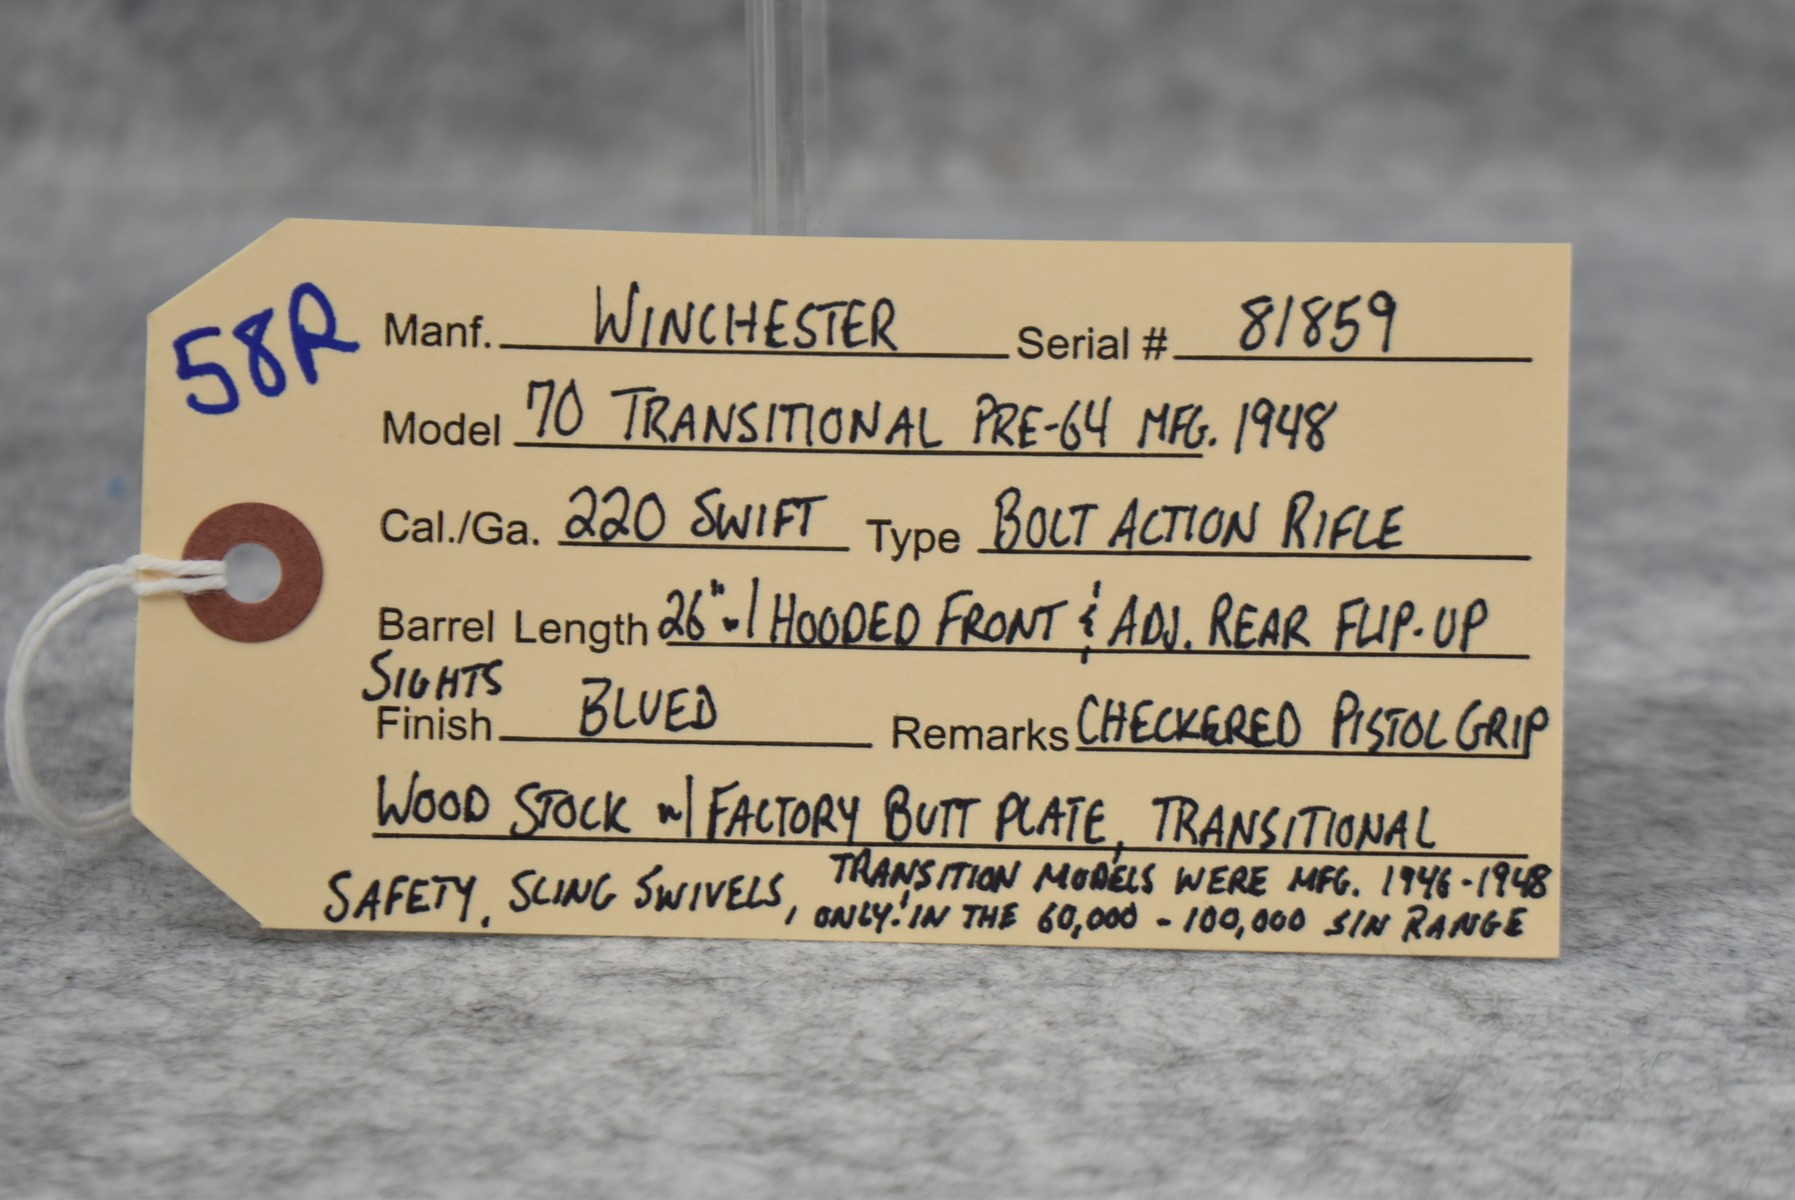 58R
Manf. WINCHESTER Serial # 81859
Model 70 TRANSITIONAL PRE-64 MFG. 1948
Cal./Ga. 220 SWIFT Type BOLT ACTION RIFLE
Barrel Length 26" w/ HOODED FRONT & ADJ. REAR FLIP-UP
SIGHTS
Finish BLUED Remarks CHECKERED PISTOL GRIP
WOOD STOCK w/ FACTORY BUTT PLATE, TRANSITIONAL
SAFETY, SLING SWIVELS, TRANSITION MODELS WERE MFG. 1946-1948
ONLY! IN THE 60,000 - 100,000 S/N RANGE